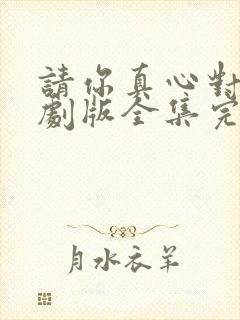 請你真心對
劇版全集完
月水衣羊